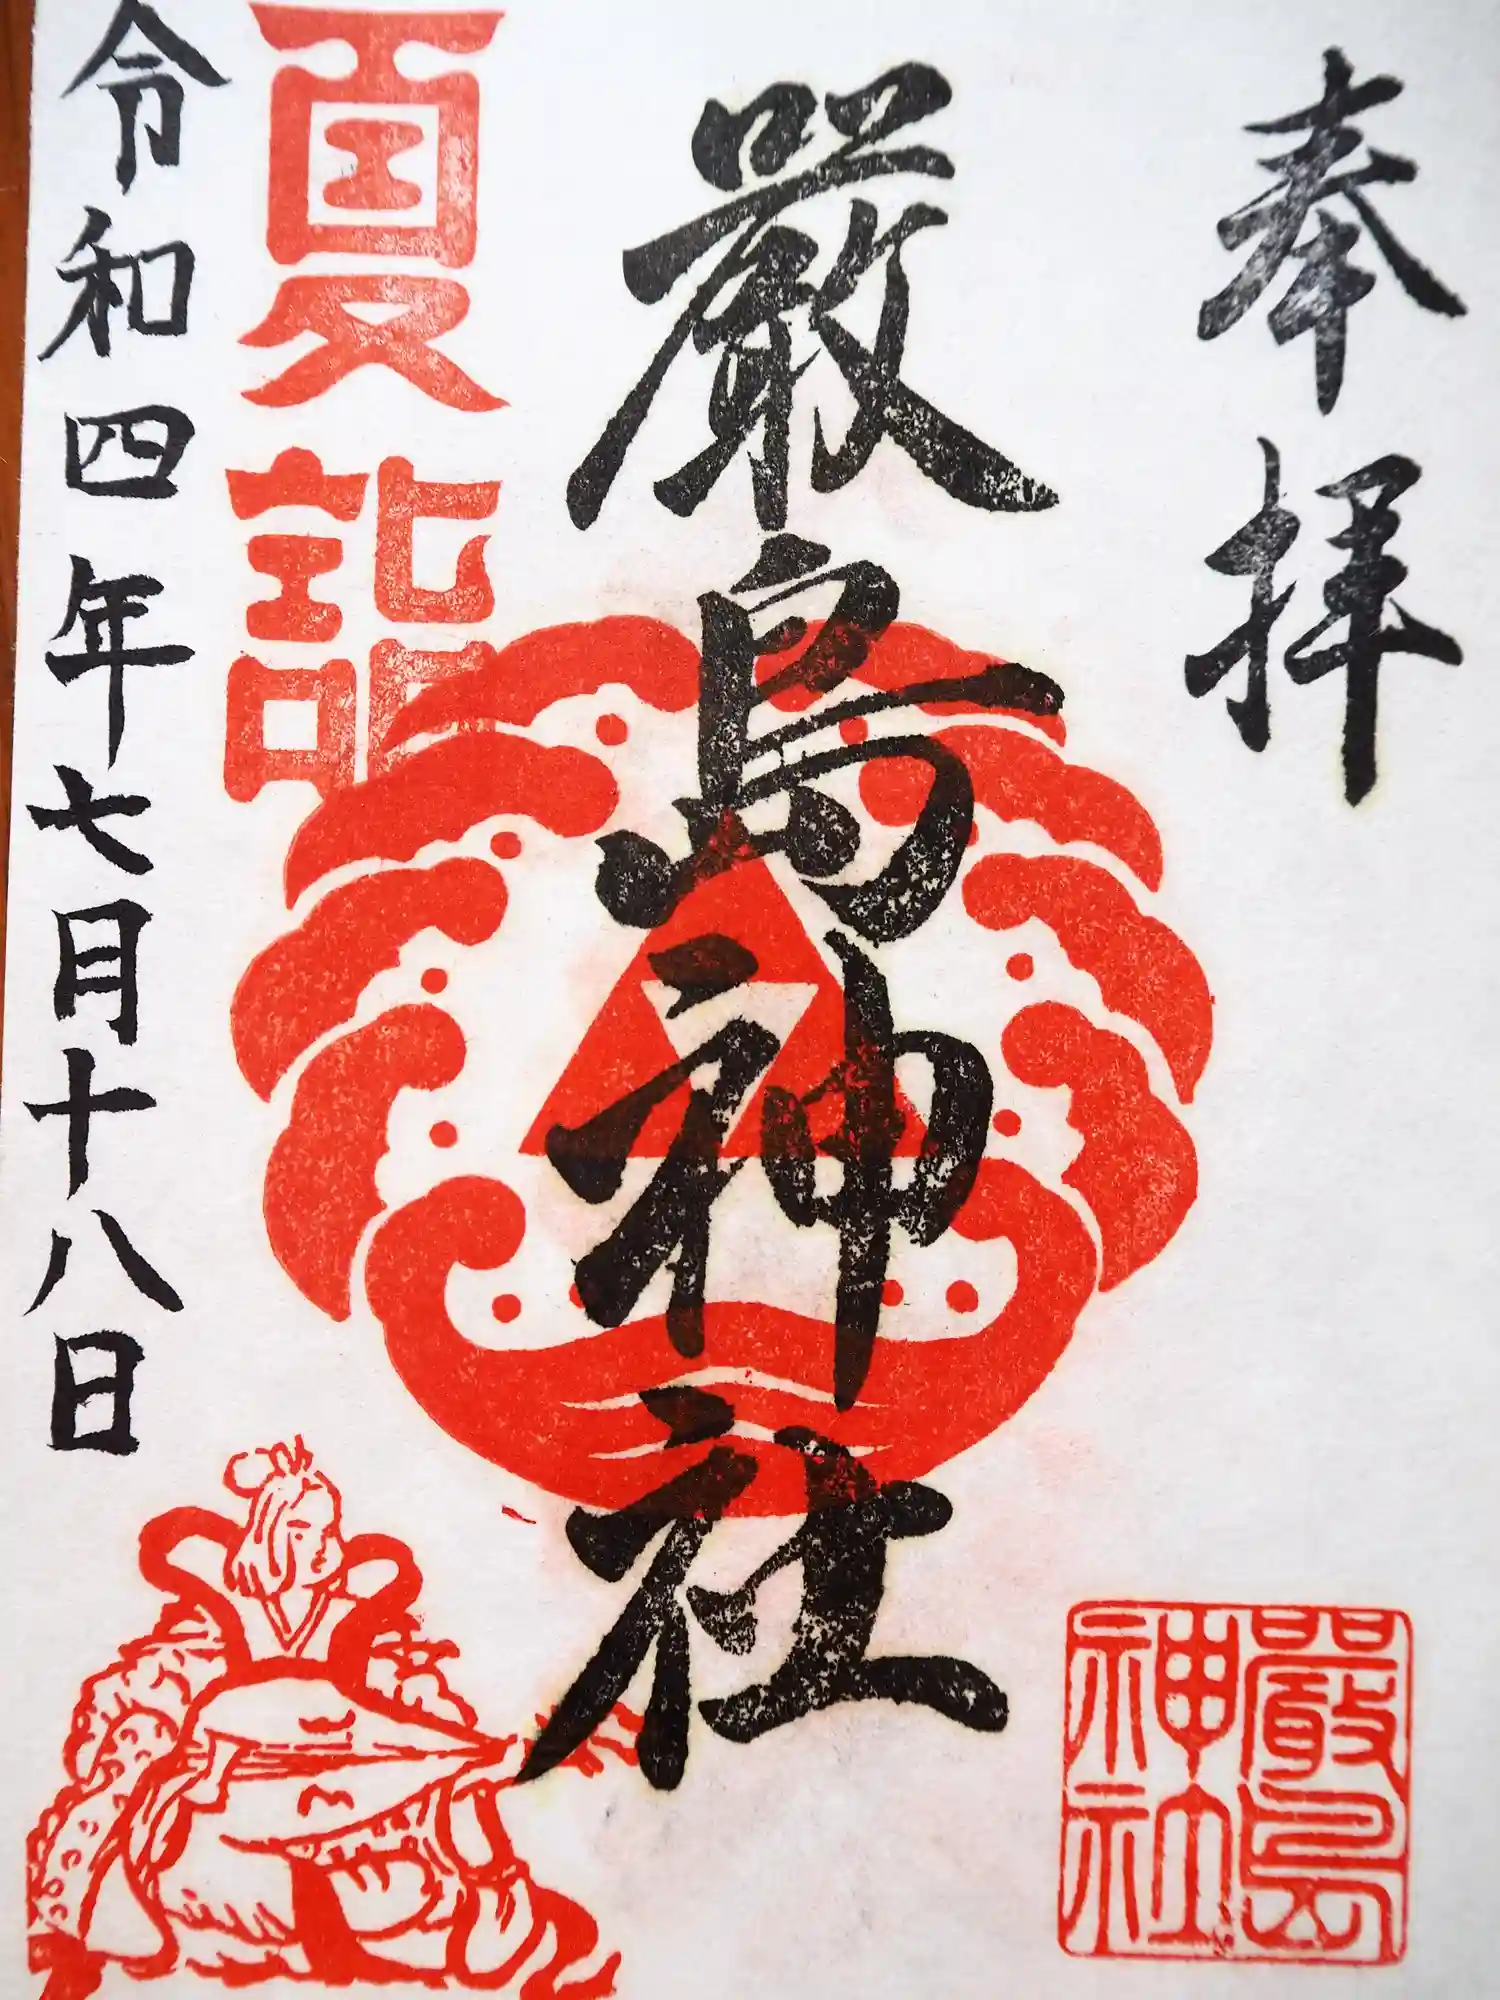 奉拝
厳島神社
嚴島
神社
夏詣
令和四年七月十八日